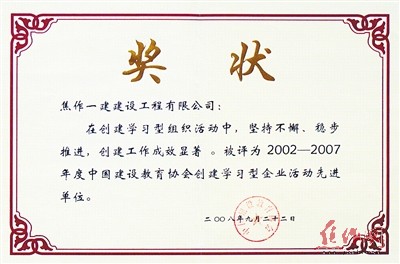 奖状
焦作一建建设工程有限公司：
在创建学习型组织活动中，坚持不懈、稳步
推进，创建工作成效显著 。被评为 2002—2007
年度中国建设教育协会创建学习型企业活动先进
单位。
二〇〇八年九月二十二日